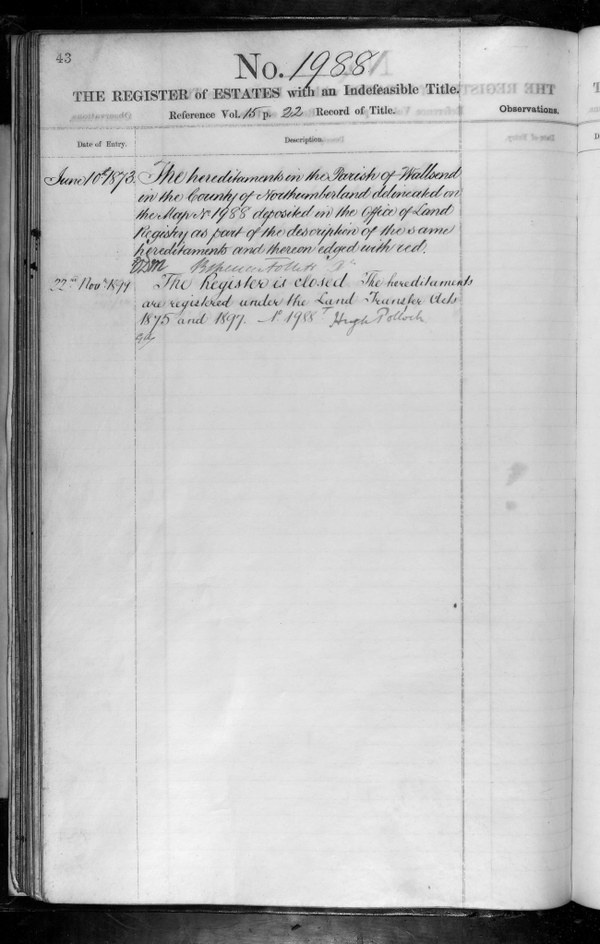 43
No. 1988
THE REGISTER of ESTATES with an Indefeasible Title.
Reference Vol. 15 p. 22 Record of Title.
Observations.
Date of Entry.
Description.
June 10th 1873. The hereditaments in the Parish of Wallsend
in the County of Northumberland delineated on
the Map No 1988 deposited in the Office of Land
Registry as part of the description of the same
hereditaments and thereon edged with red.
22nd Novr 1899 The Register is closed The hereditaments
are registered under the Land Transfer Acts
1875 and 1897. No 1988 Hugh Pollock